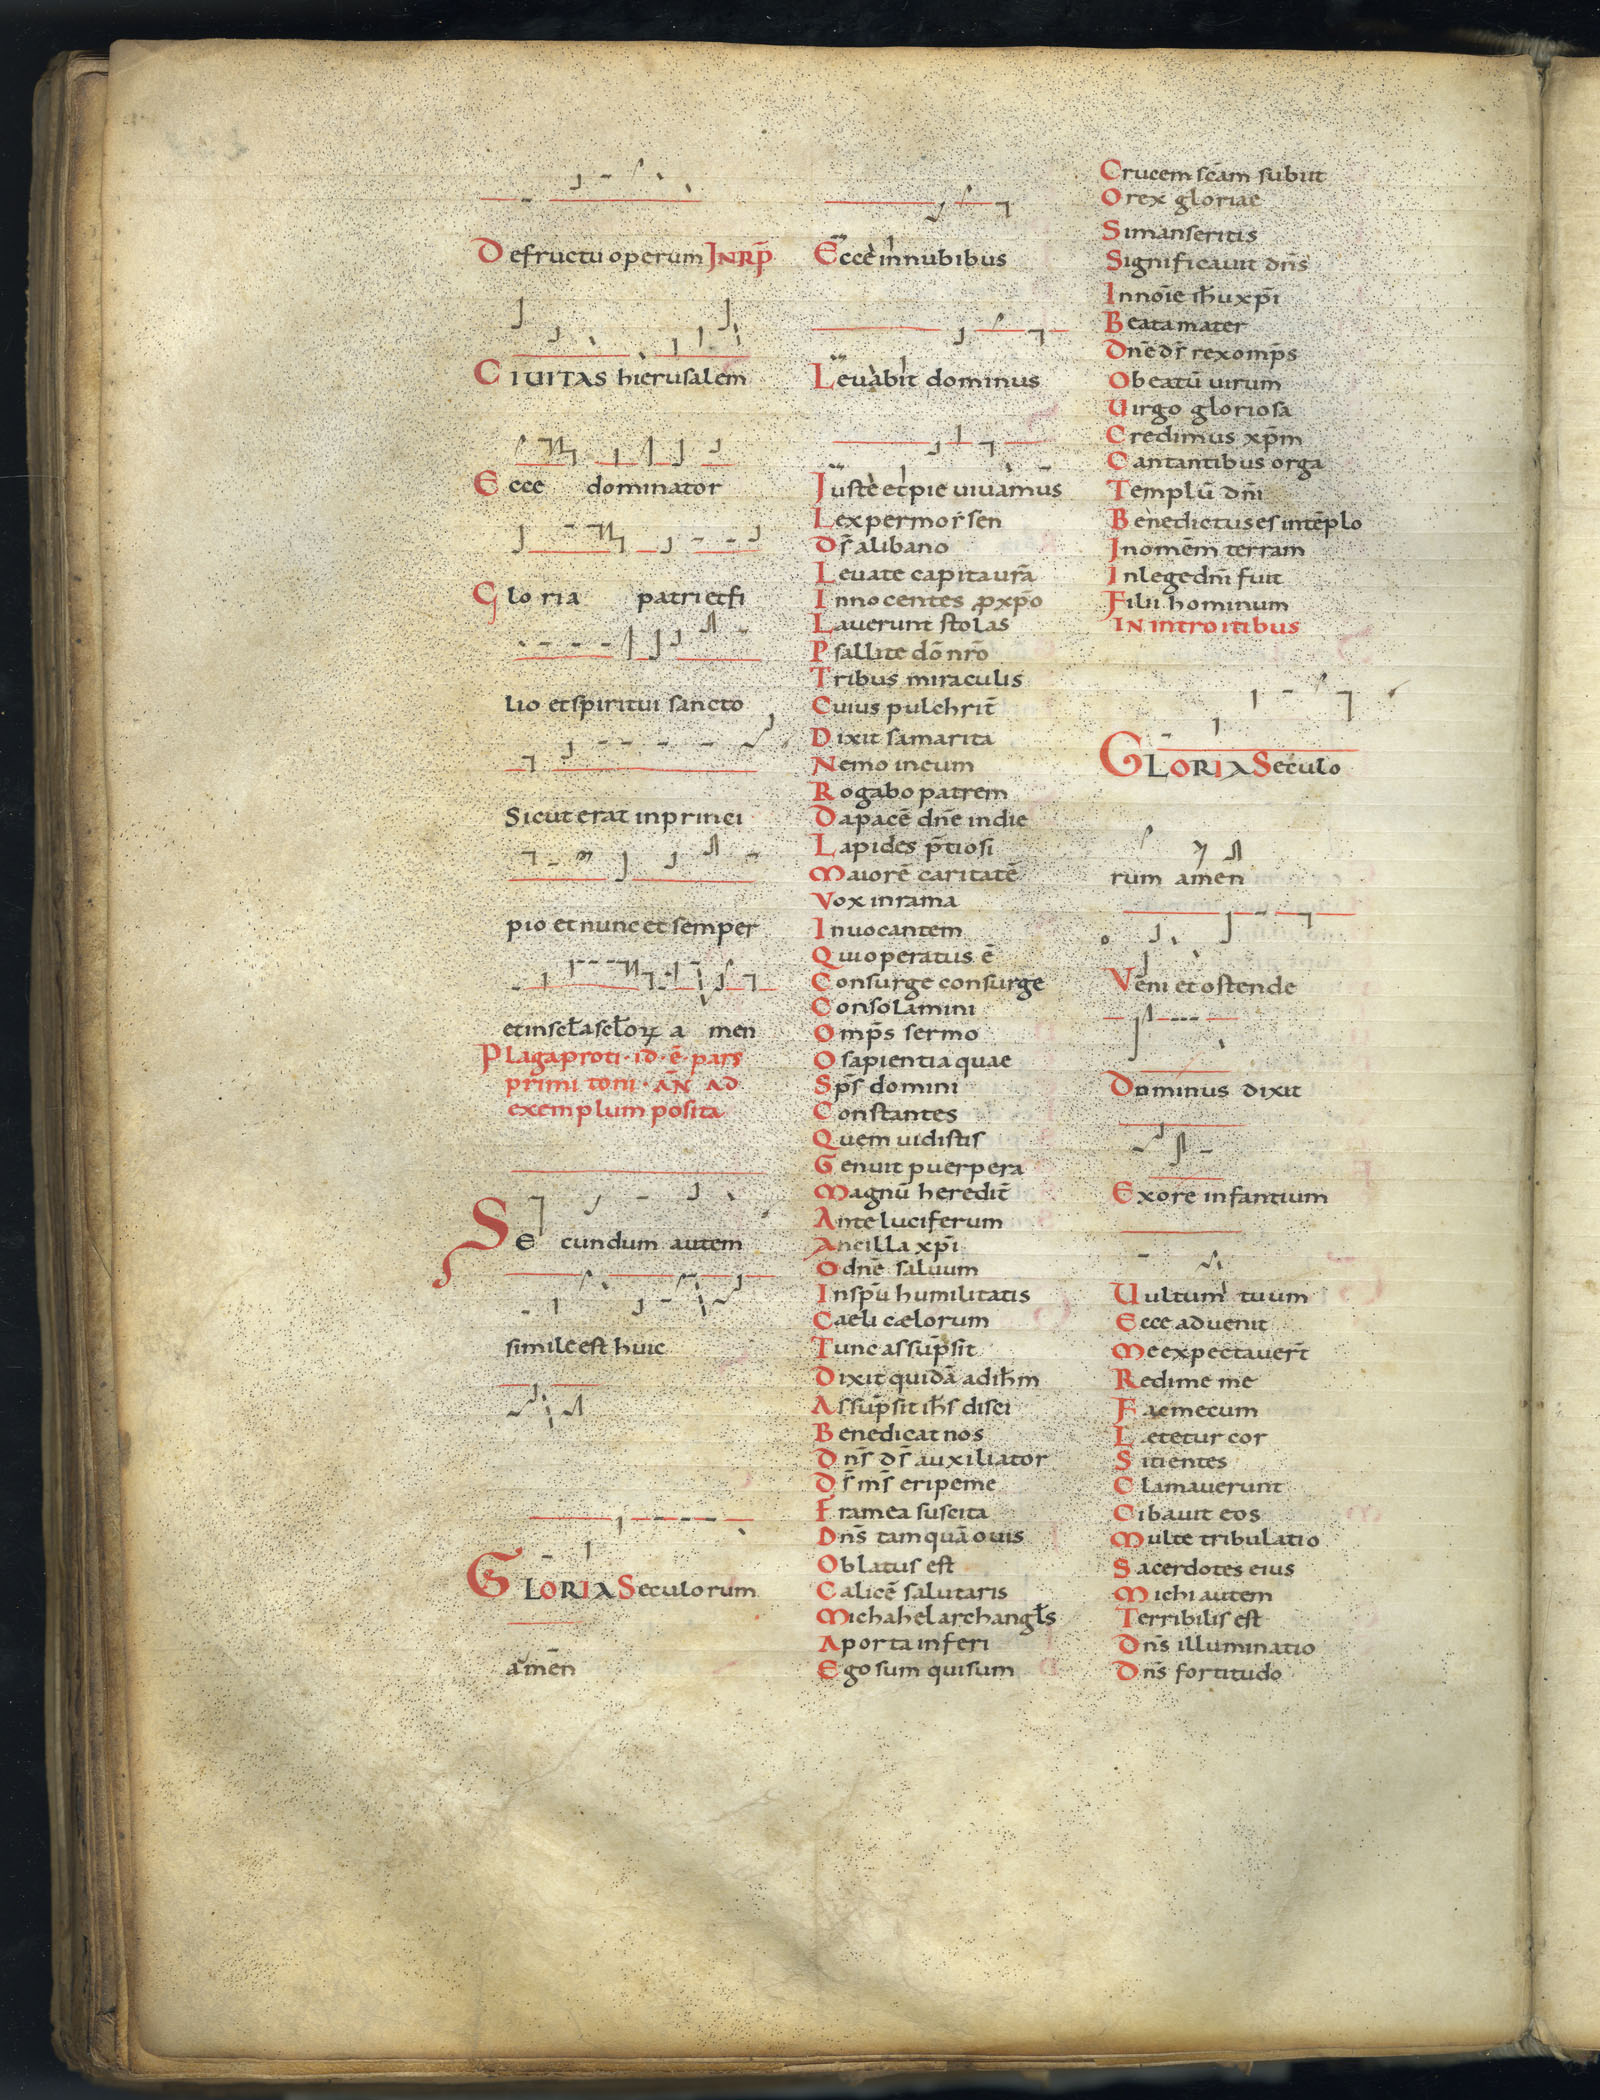 Defructu operum JNRP̄
CIUITAS hierusalem
Ecce dominator
Gloria patri etfi
lio etspiritui sancto
Sicut erat inprinci
pio etnunc et semper
etinsc̄l̄a sc̄l̄oꝝ a men
Plagaproti · id · ē · pars
primi toni · AN̄ AD
exemplum posita
SE cundum autem
simile est huic
GLORIA Seculorum
amen
Ecce innubibus
Leuabit dominus
Juste et pie uiuamus
Lex per moẏsen
Ds̄ alibano
Leuate capita ur̄a
Innocentes ꝓ xp̄o
Lauerunt stolas
Psallite dō nrō
Tribus miraculis
Cuius pulchrit̄
Dixit samarita
Nemo in eum
Rogabo patrem
Dapacē dn̄e indie
Lapides p̄tiosi
Maiorē caritatē
Vox in rama
Inuocantem
Qui operatus ē
Consurge consurge
Consolamini
Omp̄s sermo
O sapientia quae
Sp̄s domini
Constantes
Quem uidistis
Genuit puerpera
Magnū heredit̄
Ante luciferum
Ancilla xp̄i
O dn̄e saluum
Insp̄u humilitatis
Caeli cælorum
Tunc assūpsit
Dixit quidā adihm̄
Assūpsit ih̄s disci
Benedicat nos
Dn̄s ds̄ auxiliator
Ds̄ ms̄ eripeme
Framea suscita
Dn̄s tamquā ouis
Oblatus est
Calicē salutaris
Michahel archangl̄s
A porta inferi
Ego sum qui sum
Crucem scām subiit
O rex gloriae
Si manseritis
Significauit dn̄s
Innoīe ih̄u xp̄i
Beata mater
Dn̄e ds̄ rex omp̄s
O beatū uirum
Uirgo gloriosa
Credimus xp̄m
Cantantibus orga
Templū dn̄i
Benedictus es intēplo
Jnomēm terram
Inlege dn̄i fuit
Filii hominum
IN introitibus
GLORIA Seculo
rum amen
Veni et ostende
Dominus dixit
Exore infantium
Uultum tuum
Ecce aduenit
Me expectauer̄t
Redime me
Fac mecum
Lætetur cor
Sitientes
Clamauerunt
Cibauit eos
Multe tribulatio
Sacerdotes eius
Michi autem
Terribilis est
Dn̄s illuminatio
Dn̄s fortitudo